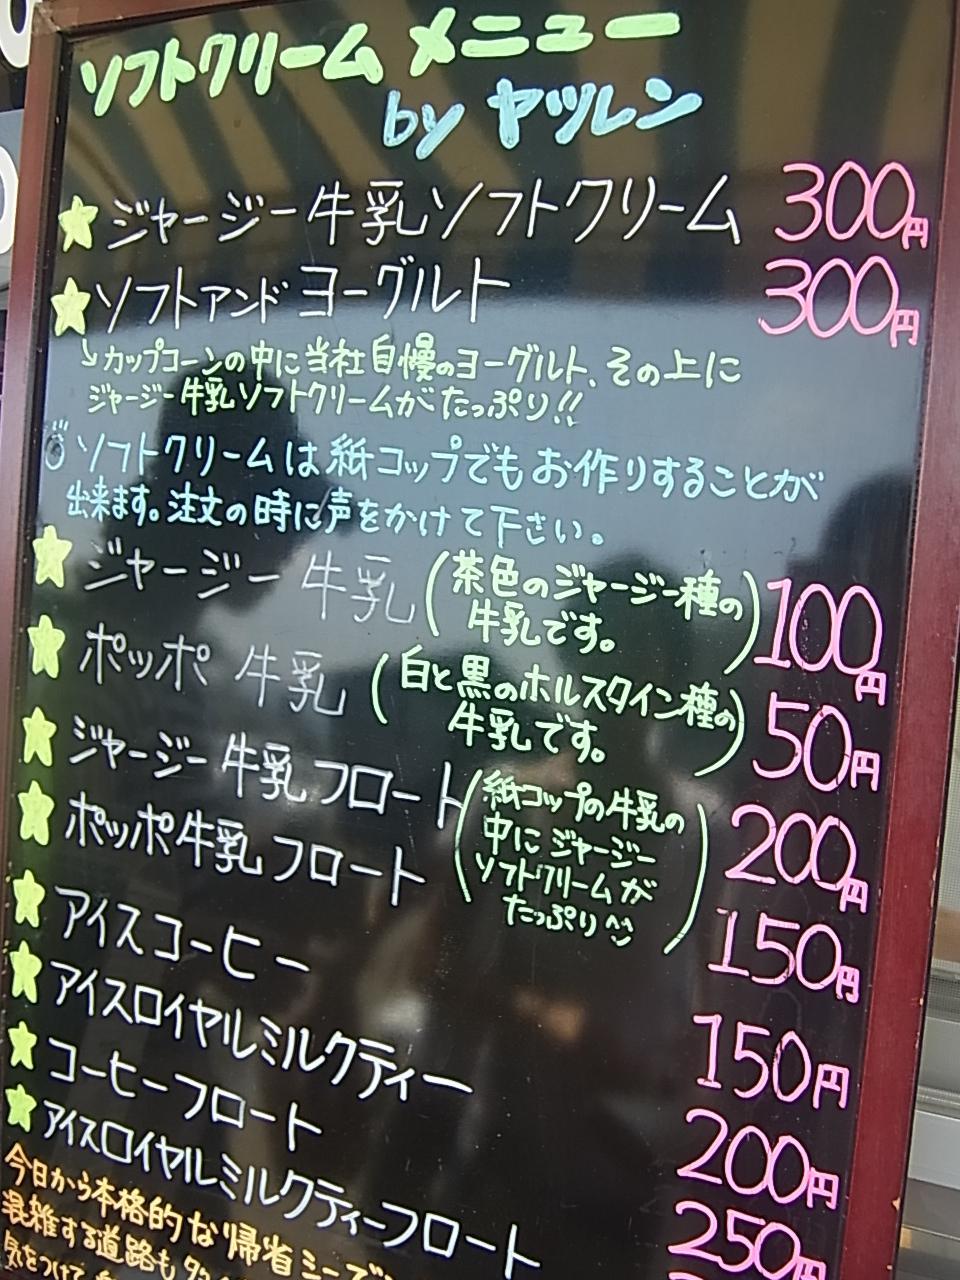 ソフトクリーム メニュー
by ヤツレン
ジャージー牛乳ソフトクリーム 300円
ソフトアンドヨーグルト 300円
カップコーンの中に当社自慢のヨーグルト、その上に
ジャージー牛乳ソフトクリームがたっぷり!!
ソフトクリームは紙コップでもお作りすることが
出来ます。注文の時に声をかけて下さい。
ジャージー牛乳 (茶色のジャージー種の
牛乳です。) 100円
ポッポ牛乳 (白と黒のホルスタイン種の
牛乳です。) 50円
ジャージー牛乳フロート 200円
ポッポ牛乳フロート 150円
(紙コップの牛乳の
中にジャージー
ソフトクリームが
たっぷり^^)
アイスコーヒー 150円
アイスロイヤルミルクティー 200円
コーヒーフロート 250円
アイスロイヤルミルクティーフロート
今日から本格的な帰省
混雑する道路も
気をつけて